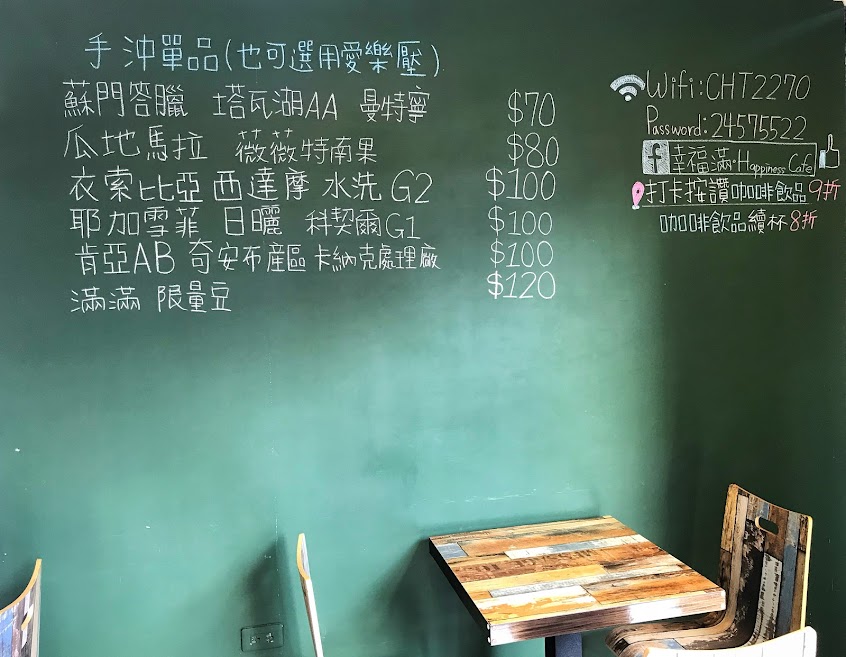 手沖單品(也可選用愛樂壓)
蘇門答臘 塔瓦湖AA 曼特寧 $70
瓜地馬拉 薇薇特南果 $80
衣索比亞 西達摩 水洗 G2 $100
耶加雪菲 日曬 科契爾G1 $100
肯亞AB 奇安布產區 卡納克處理廠 $100
滿滿 限量豆 $120
Wifi:CHT2270
Password:24575522
f 幸福滿·Happiness Cafe
打卡按讚咖啡飲品9折
咖啡飲品續杯8折